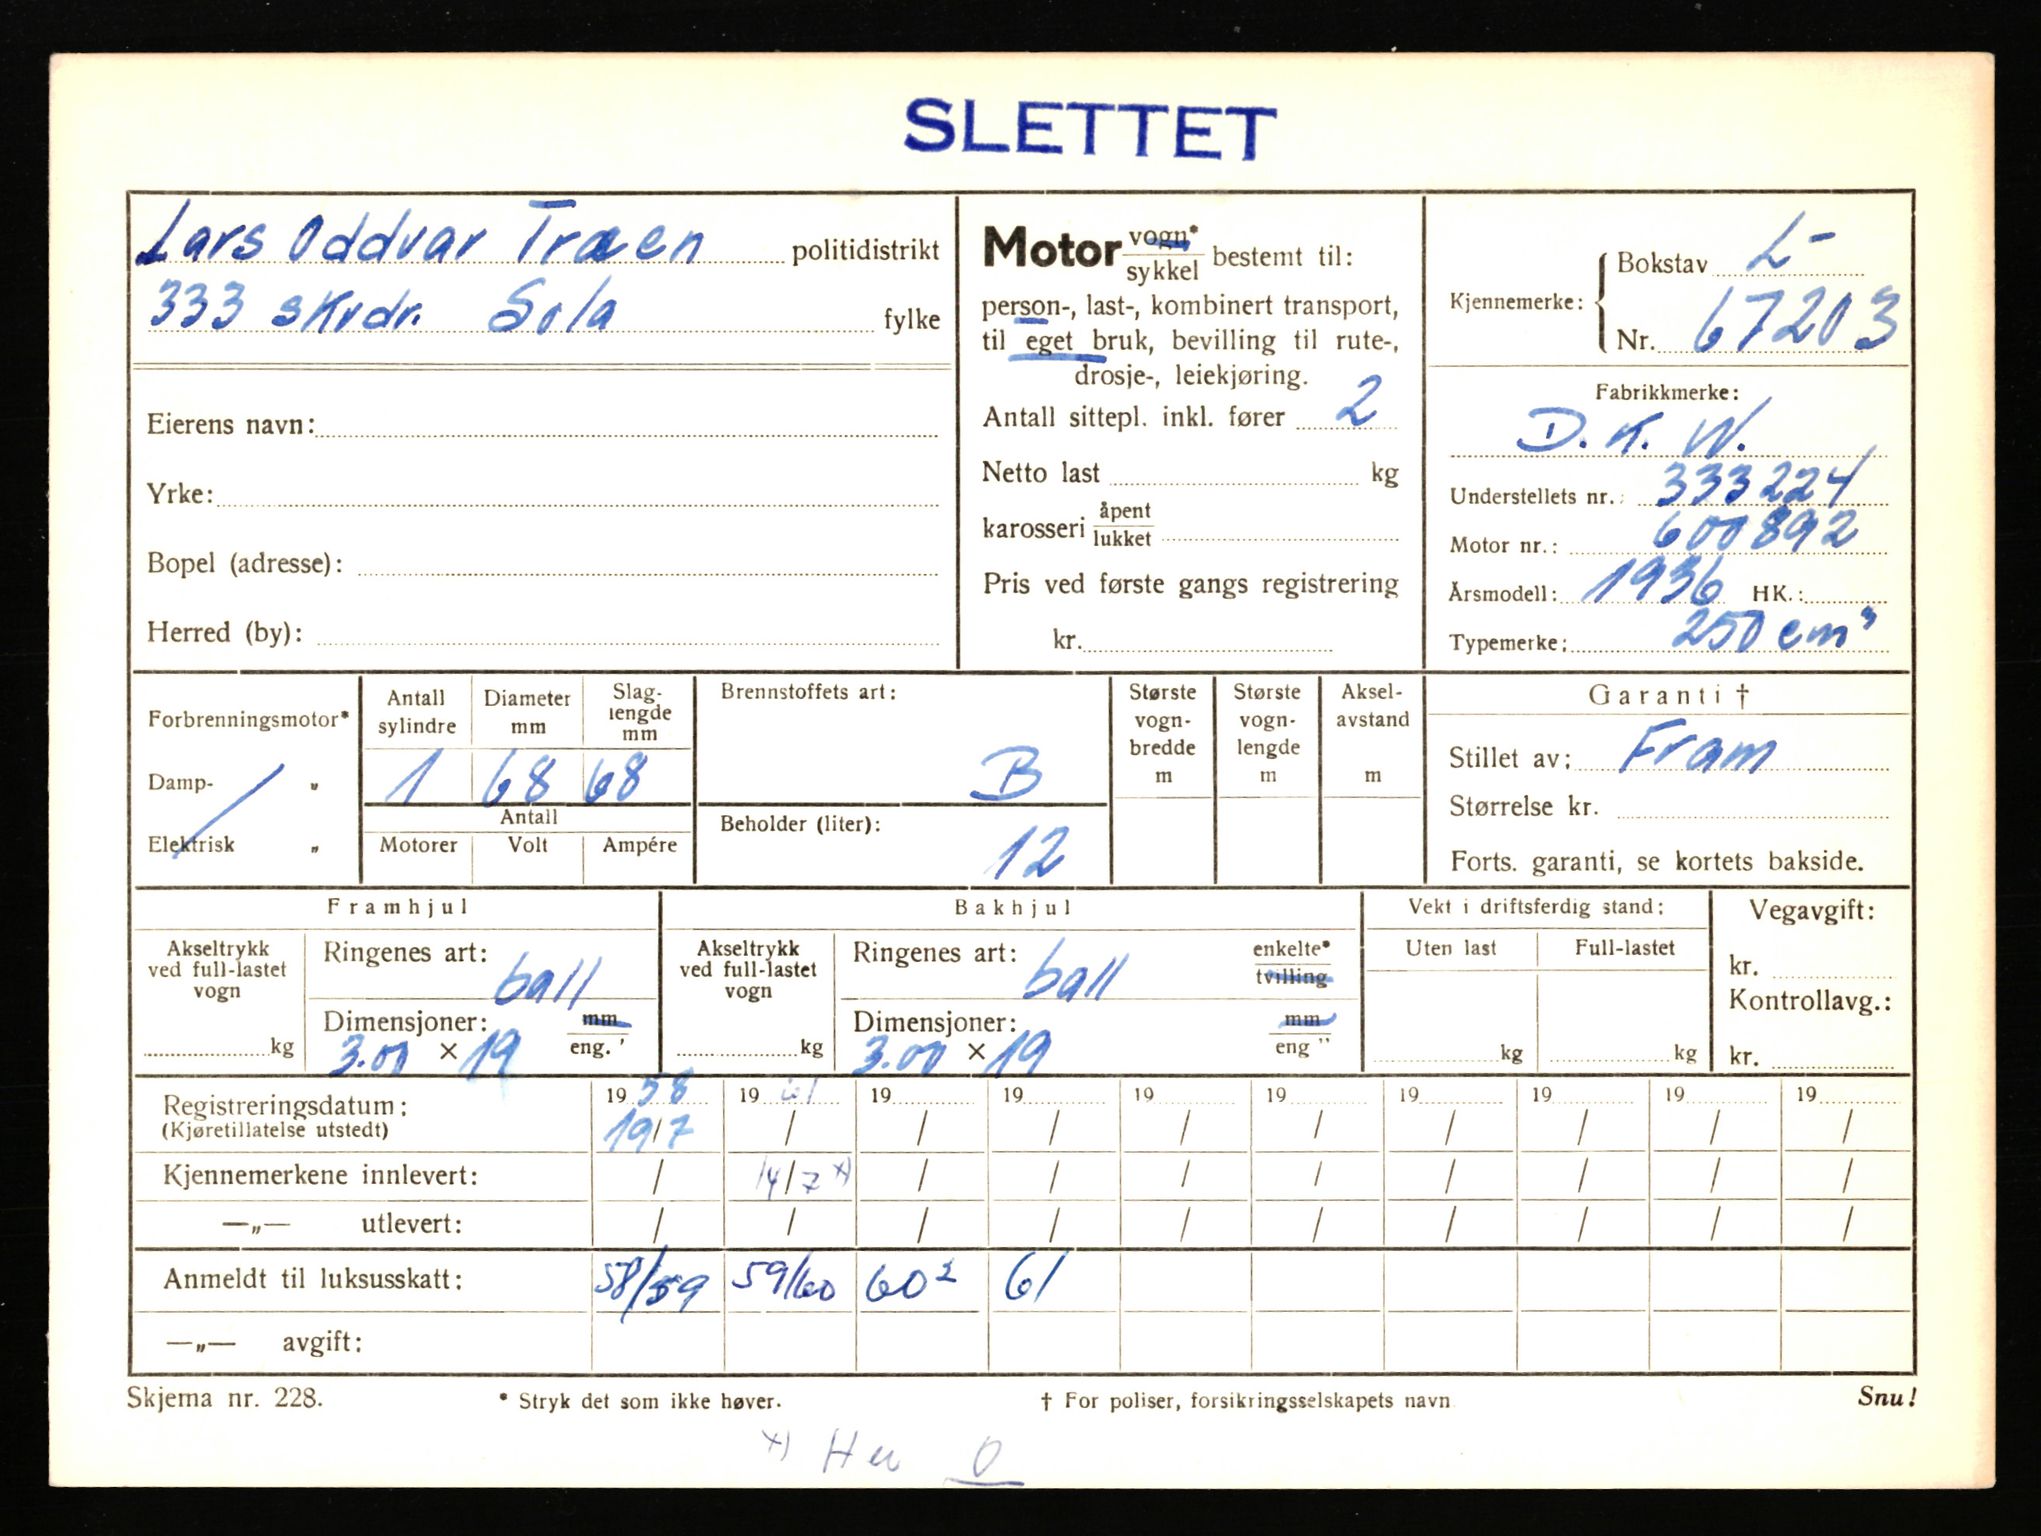 SLETTET
Lars Oddvar Træen politidistrikt
333 skvdr. Sola fylke
Eierens navn:
Yrke:
Bopel (adresse):
Herred (by):
Motor vogn* / sykkel bestemt til:
person-, last-, kombinert transport,
til eget bruk, bevilling til rute-,
drosje-, leiekjøring.
Antall sittepl. inkl. fører 2
Netto last kg
karosseri åpent / lukket
Pris ved første gangs registrering
kr.
Kjennemerke: { Bokstav L-
Nr. 67203
Fabrikkmerke:
D.K.W.
Understellets nr.: 333224
Motor nr.: 600892
Årsmodell: 1936 HK.:
Typemerke: 250 cm³
Forbrenningsmotor*
Damp- „
Elektrisk „
Antall sylindre Diameter mm Slaglengde mm
1 68 68
Antall
Motorer Volt Ampére
Brennstoffets art:
B
Beholder (liter):
12
Største vogn-bredde m
Største vogn-lengde m
Aksel-avstand m
Garanti †
Stillet av: Fram
Størrelse kr.
Forts. garanti, se kortets bakside.
Framhjul
Akseltrykk
ved full-lastet
vogn
kg
Ringenes art:
ball
Dimensjoner: mm
3.00 × 19 eng. '
Bakhjul
Akseltrykk
ved full-lastet
vogn
kg
Ringenes art: enkelte*
ball tvilling
Dimensjoner: mm
3.00 × 19 eng "
Vekt i driftsferdig stand:
Uten last Full-lastet
kg kg
Vegavgift:
kr.
Kontrollavg.:
kr.
19 58 19 61 19 19 19 19 19 19 19 19
Registreringsdatum:
(Kjøretillatelse utstedt) 19/7 / / / / / / / / /
Kjennemerkene innlevert: / 14/7 x) / / / / / / / /
—„— utlevert: / / / / / / / / / /
Anmeldt til luksusskatt: 58/59 59/60 60² 61
—„— avgift:
Skjema nr. 228. * Stryk det som ikke høver. † For poliser, forsikringsselskapets navn Snu!
x) O